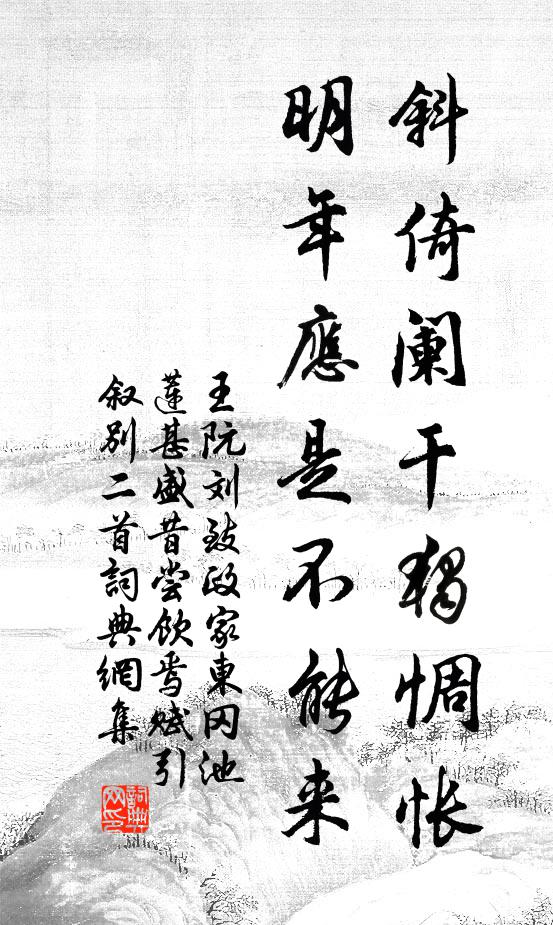 斜倚阑干独惆怅
明年應是不能来
王阮刘致政家東园池
莲甚盛昔尝饮焉赋引
叙别二首詞典網集